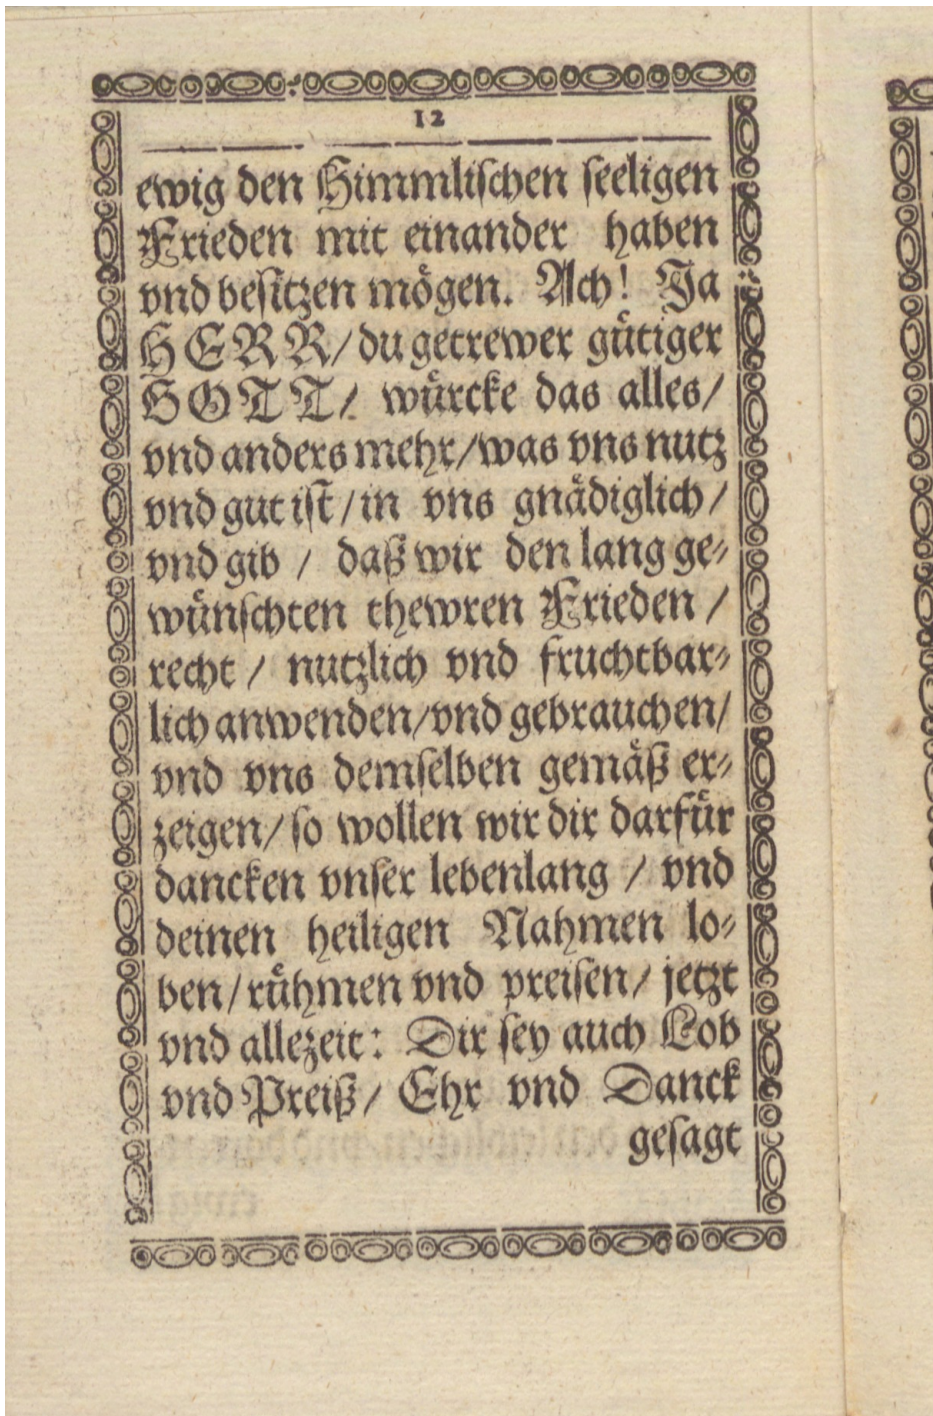 12
ewig den Himmlischen seeligen
Frieden mit einander haben
vnd besitzen mögen. Ach! Ja
HERR/ du getrewer gütiger
GOTT/ würcke das alles/
vnd anders mehr/ was vns nutz
vnd gut ist/ in vns gnädiglich/
vnd gib / daß wir den lang ge-
wünschten thewren Frieden /
recht / nutzlich vnd fruchtbar-
lich anwenden/ vnd gebrauchen/
vnd vns demselben gemäß er-
zeigen/ so wollen wir dir darfür
dancken vnser lebenlang / vnd
deinen heiligen Nahmen lo-
ben/ rühmen vnd preisen/ jetzt
vnd allezeit: Dir sey auch Lob
vnd Preiß/ Ehr vnd Danck
gesagt